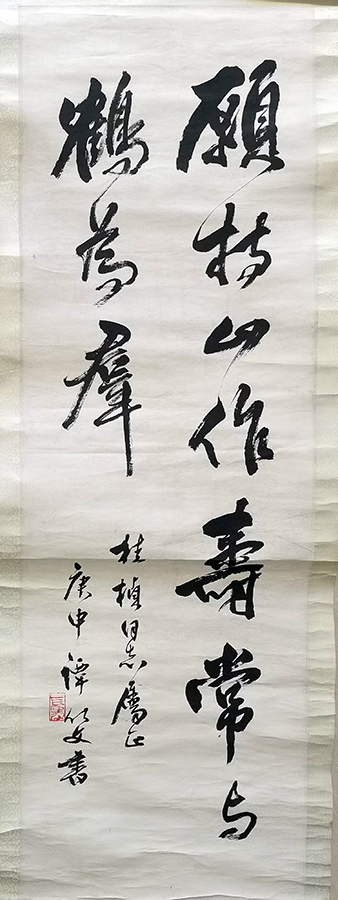 願持山作壽常与
鶴為羣
桂楨同志屬正
庚申譚筱文書